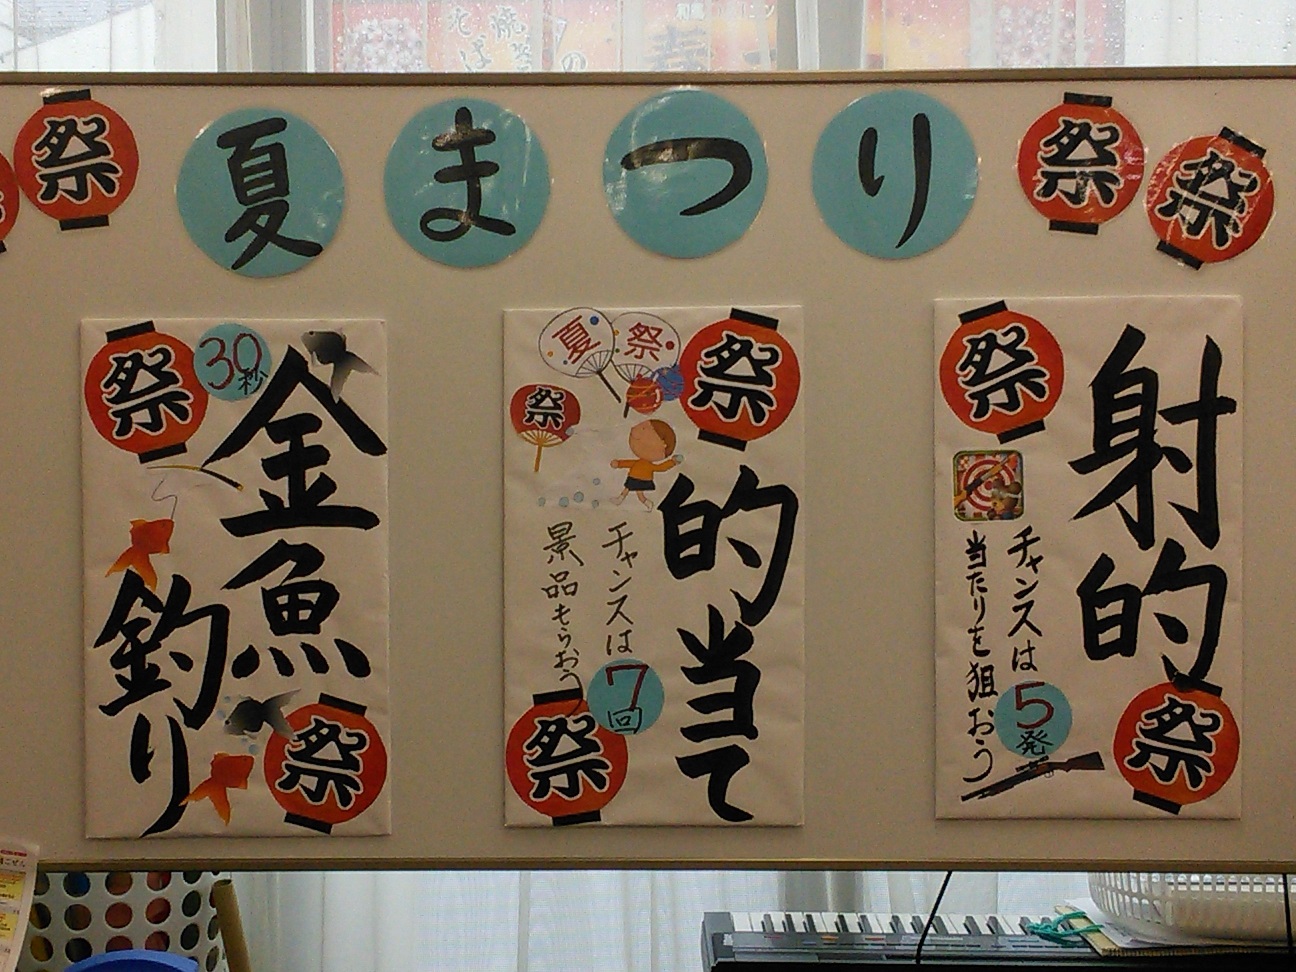 祭
夏まつり
祭
祭
祭
30秒
金魚
釣り
祭
夏
祭
祭
祭
的当て
チャンスは7回
景品もらおう
祭
祭
射的
チャンスは5発
当たりを狙おう
祭